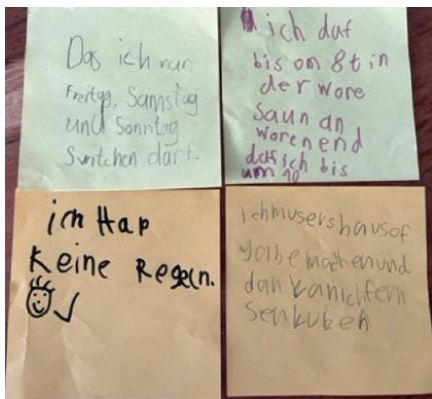 Das ich nur
Freitag, Samstag
und Sonntag
Switchen darf.
ich daf
bis om 8t in
der wore
Saun an
worenend
dafich bis
um 10
ich Hap
Keine Regeln.
ichmusershausof
gabemachenund
dankanichfern
senkuken